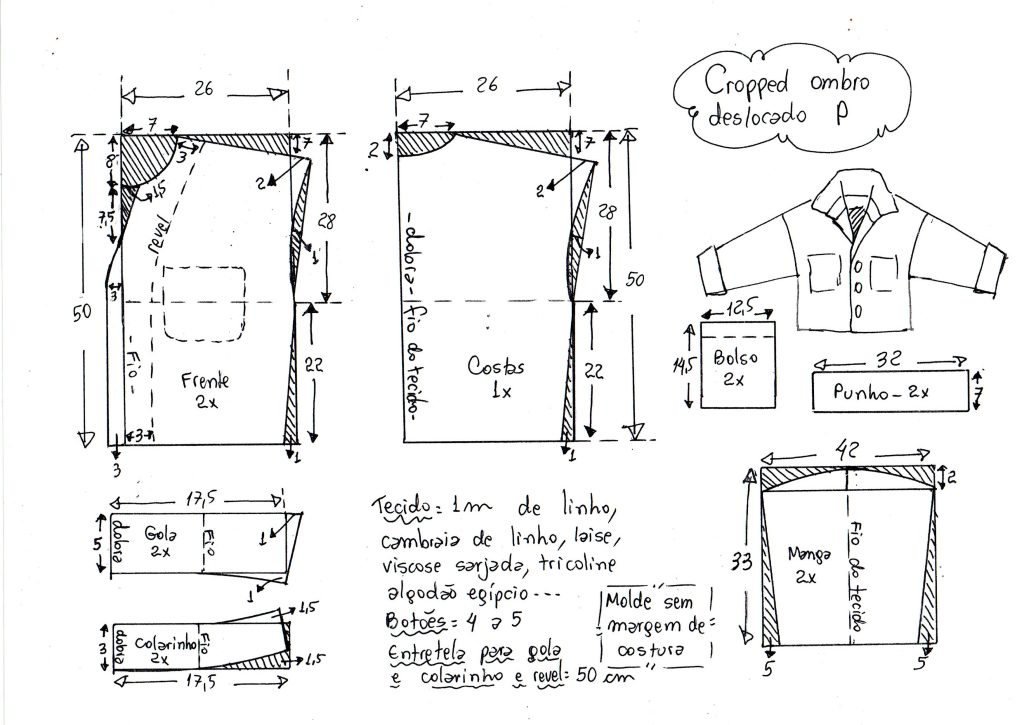 Cropped ombro
deslocado P
26
7
8
3
1,5
7,5
3
revel
- Fio -
Frente
2x
2
1
28
22
50
3
3
1
26
7
2
7
2
1
28
22
50
- dobra - fio do tecido -
Costas
1x
1
12,5
14,5
Bolso
2x
32
Punho - 2x
7
42
2
33
Manga
2x
Fio do tecido
5
5
17,5
5
dobra
Gola
2x
Fio
1
1
3
dobra
Colarinho
2x
Fio
1,5
1,5
17,5
Tecido = 1m de linho,
cambraia de linho, laise,
viscose sarjada, tricoline
algodão egípcio ---
Botões = 4 a 5
Entretela para gola
e colarinho e revel = 50 cm
Molde sem
margem de
costura